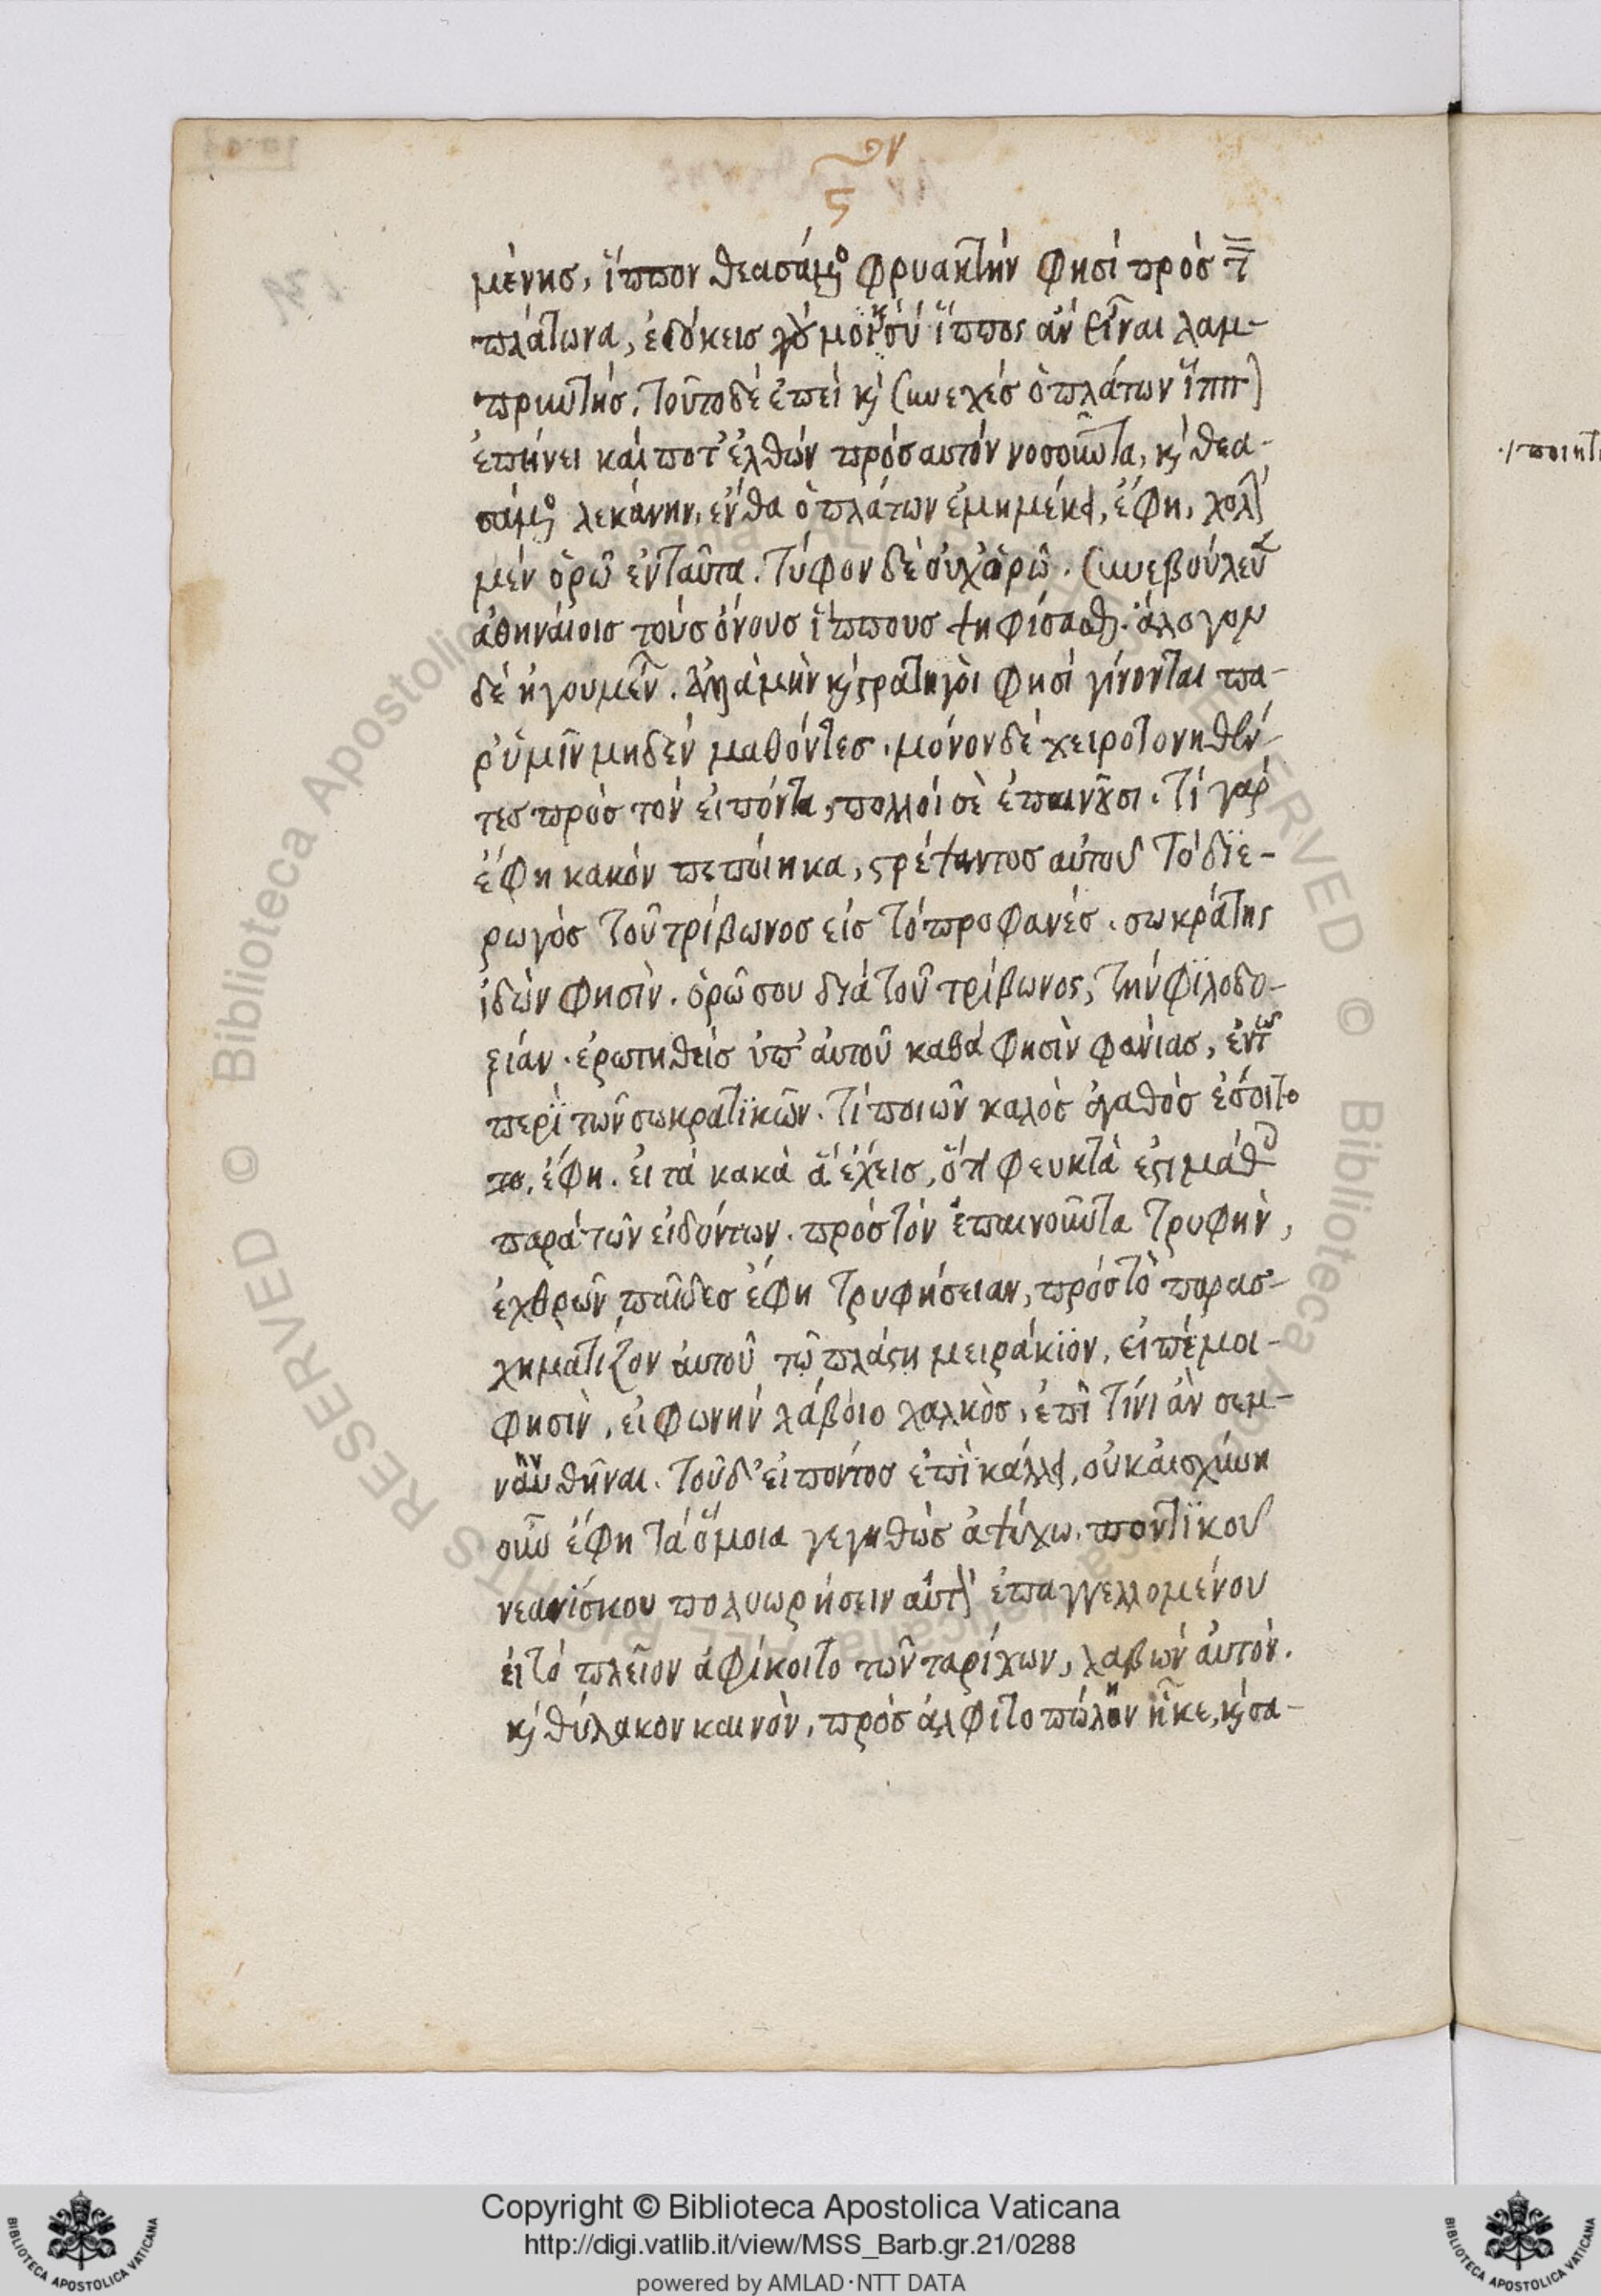 μένης, ἵππον θεασάμενος φρυακτὴν φησὶ πρὸς τὸν
πλάτωνα, ἐδόκεις μοι καὶ σὺ ἵππος ἂν εἶναι λαμ-
πρυντής. τοῦτο δὲ ἐπεὶ καὶ συνεχὲς ὁ πλάτων ἵππον
ἐπήνει καί ποτ' ἐλθὼν πρὸς αυτὸν νοσοῦντα, καὶ θεα-
σάμενος λεκάνην, ἔνθα ὁ πλάτων ἐμημέκει, ἔφη, χολὴν
μὲν ὁρῶ ἐνταῦτα. τύφον δὲ οὐχ ὁρῶ. συνεβούλευεν
ἀθηναίοις τοὺς ὄνους ἵππους ψηφίσασθαι. ἄλογον
δὲ ἡγουμένων. ἀλλὰ μὴν καὶ στρατηγοὶ φησὶ γίνονται πα-
ρ' ὑμῖν μηδὲν μαθόντες. μόνον δὲ χειροτονηθέν-
τες πρὸς τὸν εἰπόντα, πολλοί σὲ ἐπαινοῦσι. τί γὰρ
ἔφη κακὸν πεποίηκα, στρέψαντος αὐτοῦ τὸ διε-
ρωγὸς τοῦ τρίβωνος εἰς τὸ προφανές. σωκράτης
ἰδὼν φησὶν. ὁρῶ σου διὰ τοῦ τρίβωνος, τὴν φιλοδο-
ξίαν. ἐρωτηθεὶς ὑπ' αὐτοῦ καθά φησὶν φανίας, ἐν τῷ
περὶ τῶν σωκρατικῶν. τί ποιῶν καλὸς ἀγαθὸς ἐσοιτο
το, ἔφη. εἰ τὰ κακὰ ἃ ἔχεις, ὅτι φευκτὰ ἐστι μάθοις
παρὰ τῶν εἰδότων. πρὸς τὸν ἐπαινοῦντα τρυφὴν,
ἐχθρῶν παῖδες ἔφη τρυφήσειαν, πρὸς τὸ παρασ-
χηματίζον αὐτοῦ τῷ πλάστῃ μειράκιον, εἰπέ μοι-
φησὶν, εἰ φωνὴν λάβοιο χαλκὸς, ἐπὶ τίνι ἂν σεμ-
νυνθῆναι. τοῦ δ' εἰποντος ἐπὶ κάλλει, οὐκ αἰσχύνῃ
οὖν ἔφη τὰ ὅμοια γεγηθὼς ἀψύχω. ποντικοῦ
νεανίσκου πολυωρήσειν αὐτὸν ἐπαγγελλομένου
εἰ τὸ πλεῖον ἀφίκοιτο τῶν ταρίχων, λαβὼν αὐτὸν.
καὶ θύλακον καινὸν, πρὸς ἀλφιτοπώλην ἧκε, καὶ σα-
Copyright © Biblioteca Apostolica Vaticana
http://digi.vatlib.it/view/MSS_Barb.gr.21/0288
powered by AMLAD·NTT DATA